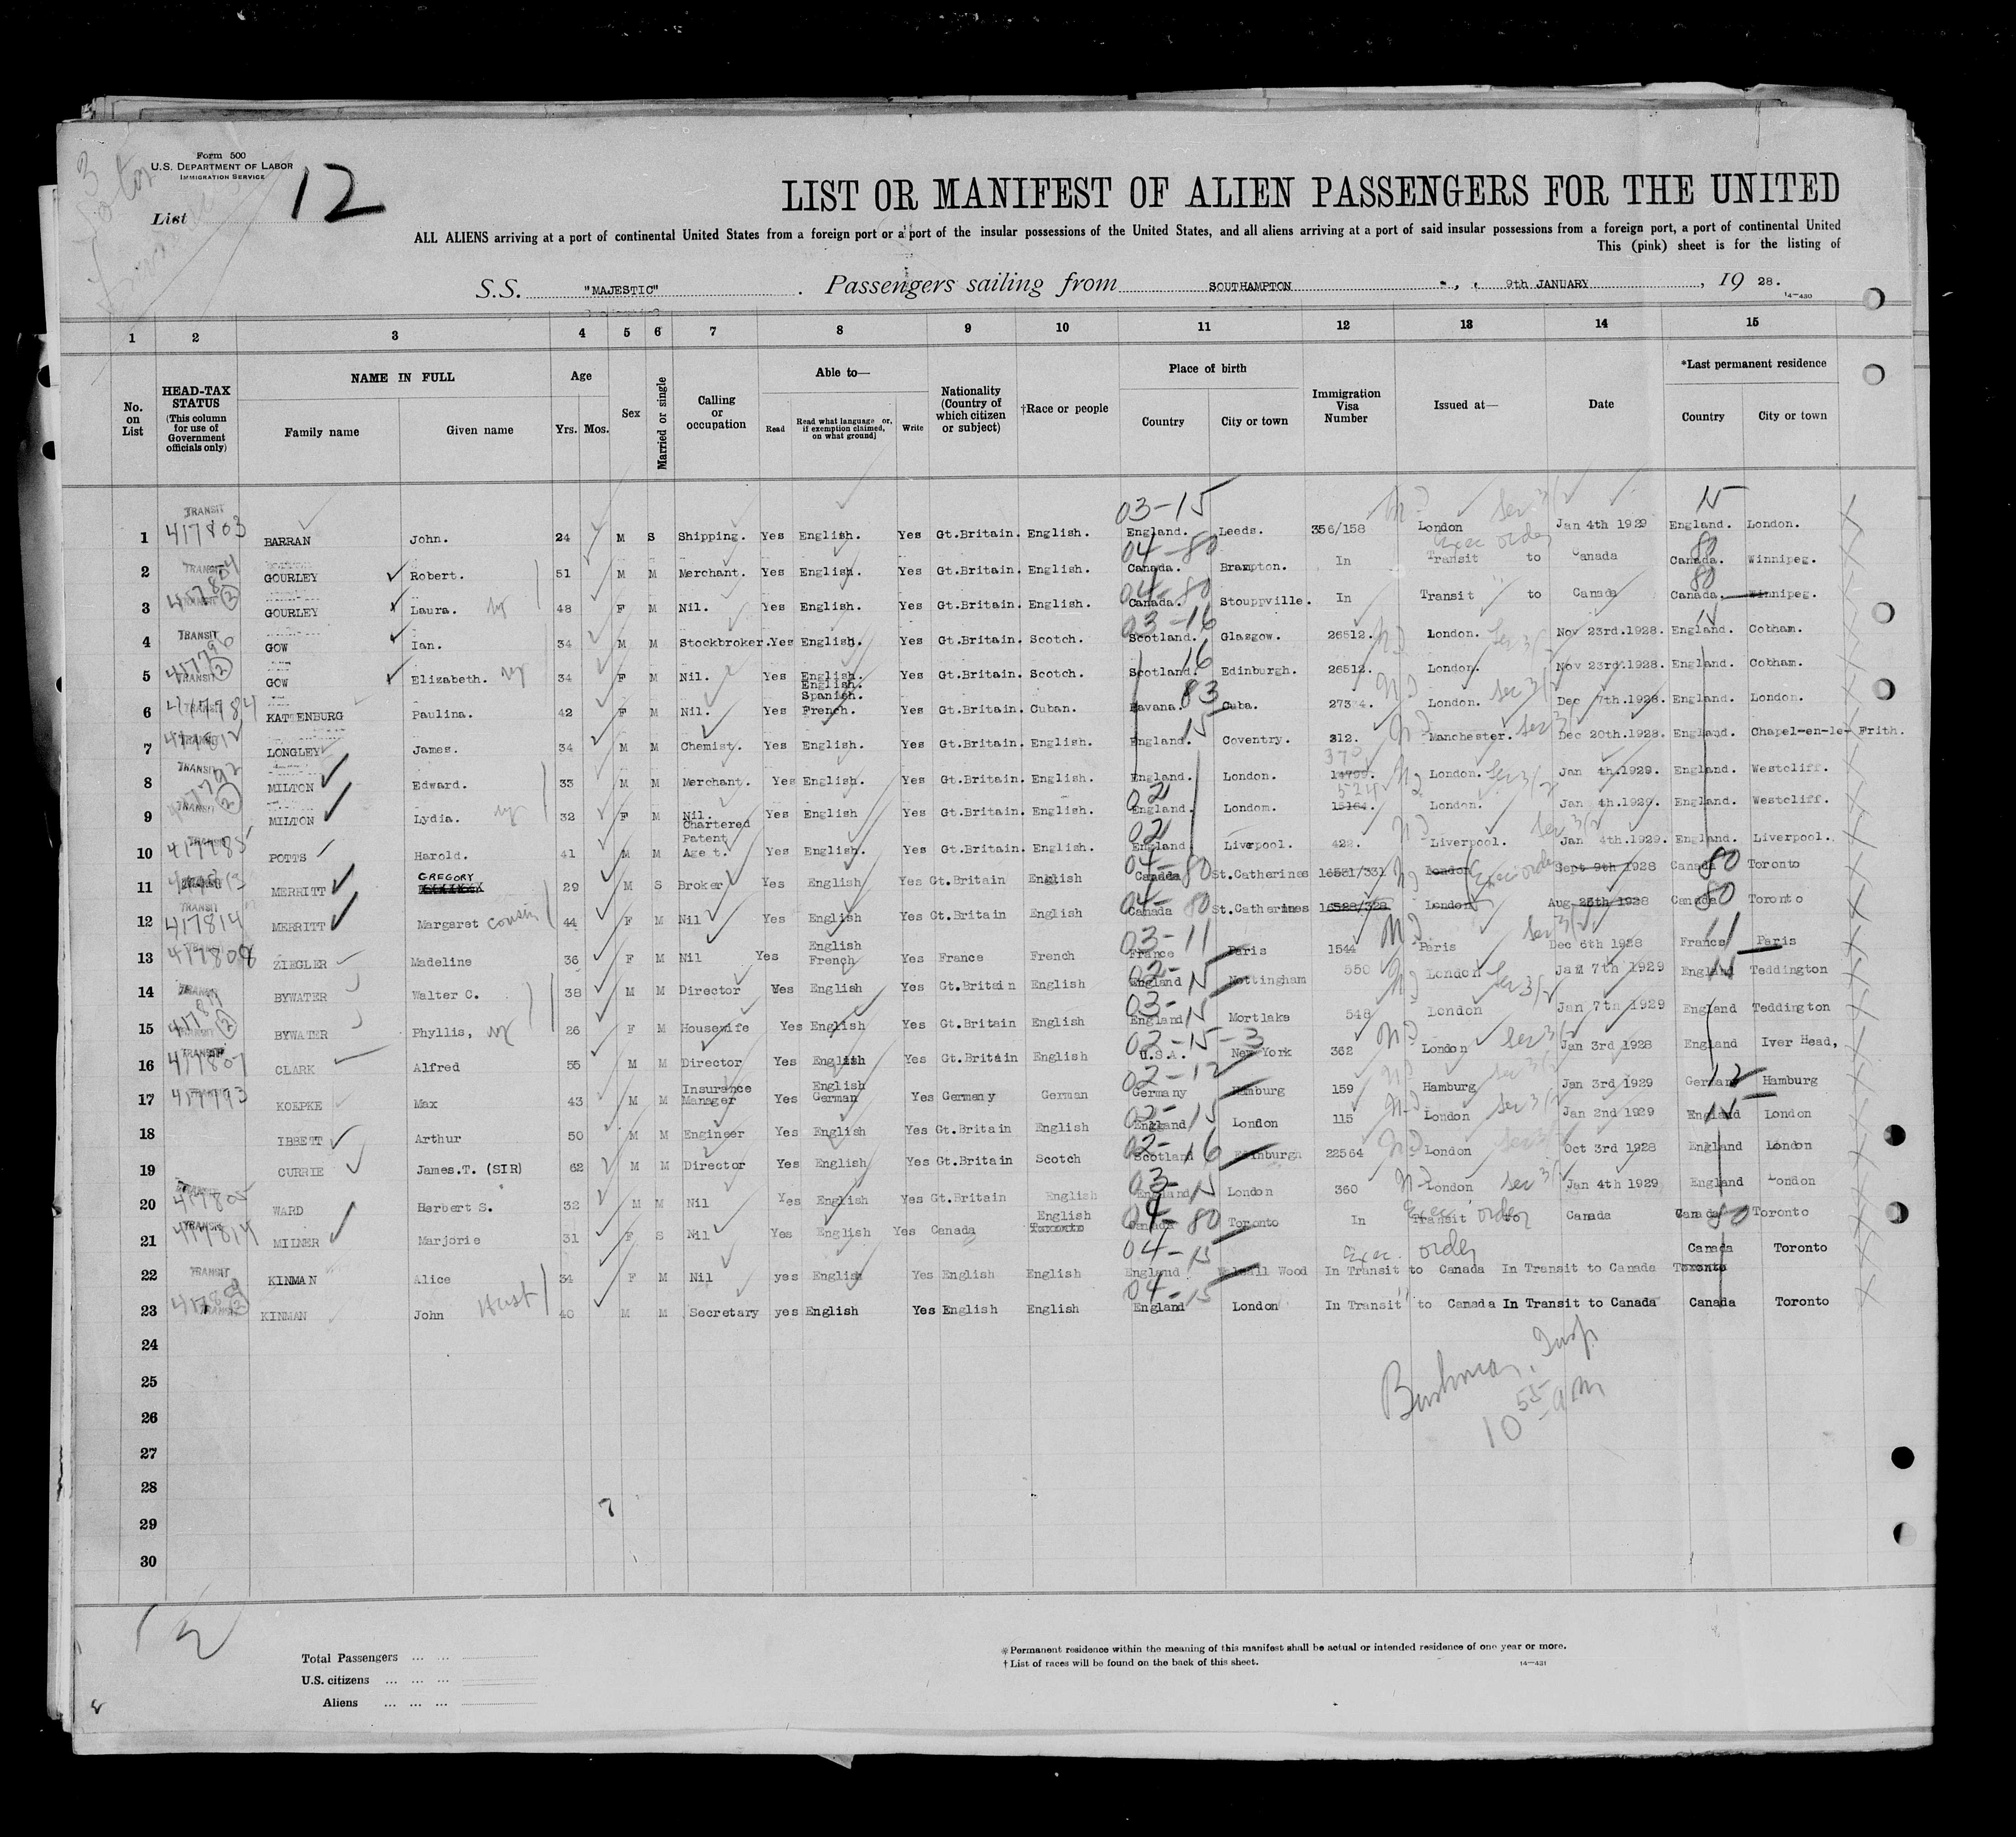 Form 500
U.S. DEPARTMENT OF LABOR
IMMIGRATION SERVICE
List 12
LIST OR MANIFEST OF ALIEN PASSENGERS FOR THE UNITED
ALL ALIENS arriving at a port of continental United States from a foreign port or a port of the insular possessions of the United States, and all aliens arriving at a port of said insular possessions from a foreign port, a port of continental United
This (pink) sheet is for the listing of
S.S. "MAJESTIC" . Passengers sailing from SOUTHAMPTON , 9th JANUARY , 19 28.
14-430
1 2 3 4 5 6 7 8 9 10 11 12 13 14 15
No. on List
HEAD-TAX STATUS (This column for use of Government officials only)
NAME IN FULL Family name Given name
Age Yrs. Mos.
Sex
Married or single
Calling or occupation
Able to— Read Read what language or, if exemption claimed, on what ground] Write
Nationality (Country of which citizen or subject)
†Race or people
Place of birth Country City or town
Immigration Visa Number
Issued at—
Date
*Last permanent residence Country City or town
1 TRANSIT 417803 BARRAN John. 24 M S Shipping. Yes English. Yes Gt.Britain. English. 03-15 England. Leeds. 356/158 London Jan 4th 1929 15 England. London.
Exec order
2 TRANSIT GOURLEY Robert. 51 M M Merchant. Yes English. Yes Gt.Britain. English. 04-80 Canada. Brampton. In Transit to Canada 80 Canada. Winnipeg.
3 GOURLEY Laura. 48 F M Nil. Yes English. Yes Gt.Britain. English. 04-80 Canada. Stouppville. In Transit to Canada 80 Canada. Winnipeg.
4 TRANSIT GOW Ian. 34 M M Stockbroker. Yes English. Yes Gt.Britain. Scotch. 03-16 Scotland. Glasgow. 26512. London. Nov 23rd.1928. 15 England. Cobham.
5 TRANSIT GOW Elizabeth. 34 F M Nil. Yes English. Yes Gt.Britain. Scotch. 16 Scotland. Edinburgh. 26512. London. Nov 23rd.1928. England. Cobham.
6 417784 KATTENBURG Paulina. 42 F M Nil. Yes English. Spanish. French. Yes Gt.Britain. Cuban. 83 Havana. Cuba. London. Dec 7th.1928. England. London.
7 LONGLEY James. 34 M M Chemist. Yes English. Yes Gt.Britain. English. 15 England. Coventry. 312. Manchester. Dec 20th.1928. England. Chapel-en-le-Frith.
8 TRANSIT MILTON Edward. 33 M M Merchant. Yes English. Yes Gt.Britain. English. England. London. London. Jan 4th.1929. England. Westcliff.
9 TRANSIT MILTON Lydia. 32 F M Nil. Yes English Yes Gt.Britain. English. 02 England. London. 524 15164. London. Jan 4th.1929. England. Westcliff.
10 417785 POTTS Harold. 41 M M Chartered Patent Age t. Yes English. Yes Gt.Britain. English. 02 England Liverpool. 422. Liverpool. Jan 4th.1929. England. Liverpool.
11 MERRITT GREGORY 29 M S Broker Yes English Yes Gt.Britain English 04-80 Canada St.Catherines 16531/331 London Exec order Sept 9th 1928 Canada 80 Toronto
12 TRANSIT 417814 MERRITT Margaret cousin 44 F M Nil Yes English Yes Gt.Britain English 04-80 Canada St.Catherines 16528/328 London Aug 25th 1928 Canada 80 Toronto
13 417808 ZIEGLER Madeline 36 F M Nil Yes English French Yes France French 03-11 France Paris 1544 Paris Dec 6th 1928 France 11 Paris
14 TRANSIT BYWATER Walter C. 38 M M Director Yes English Yes Gt.Britain English 02-15 England Nottingham 550 London Jan 7th 1929 England 15 Teddington
15 BYWATER Phyllis, 26 F M Housewife Yes English Yes Gt.Britain English 03-15 England Mortlake 548 London Jan 7th 1929 England Teddington
16 TRANSIT 417807 CLARK Alfred 55 M M Director Yes English Yes Gt.Britain English 02-15-3 U.S.A. New York 362 London Jan 3rd 1928 England Iver Head,
17 417793 KOEPKE Max 43 M M Insurance Manager Yes English German Yes Germany German 02-12 Germany Hamburg 159 Hamburg Jan 3rd 1929 Germany 12 Hamburg
18 IBBETT Arthur 50 M M Engineer Yes English Yes Gt.Britain English 02-15 England London 115 London Jan 2nd 1929 England 15 London
19 CURRIE James.T. (SIR) 62 M M Director Yes English Yes Gt.Britain Scotch 02-16 Scotland Edinburgh 22564 London Oct 3rd 1928 England London
20 417805 WARD Herbert S. 32 M M Nil Yes English Yes Gt.Britain English 03-15 England London 360 London Jan 4th 1929 England London
21 TRANSIT 417814 MILNER Marjorie 31 F S Nil Yes English Yes Canada English Toronto 04-80 Canada Toronto In Transit to Exec order Canada Canada 80 Toronto
Exec. order
22 TRANSIT KINMAN Alice 34 F M Nil yes English Yes English English 04-15 England Walsall Wood In Transit to Canada In Transit to Canada Canada Toronto Toronto
23 KINMAN John Hust 40 M M Secretary yes English Yes English English 04-15 England London In Transit to Canada In Transit to Canada Canada Toronto
24
25
26
27
28
29
30
Bushman, Insp.
10 55 am
Total Passengers ... ...
U.S. citizens ... ... ...
Aliens ... ... ...
*Permanent residence within the meaning of this manifest shall be actual or intended residence of one year or more.
†List of races will be found on the back of this sheet. 14-431